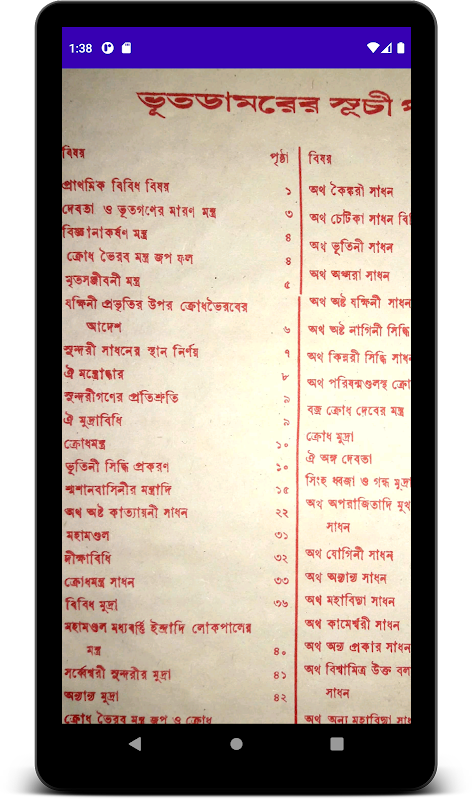 1:38
ভূতডামরের সূচী প
বিষয় পৃষ্ঠা
প্রাথমিক বিবিধ বিষয় ১
দেবতা ও ভূতগণের মারণ মন্ত্র ৩
বিজ্ঞানাকর্ষণ মন্ত্র ৪
ক্রোধ ভৈরব মন্ত্র জপ ফল ৪
মৃতসঞ্জীবনী মন্ত্র ৫
যক্ষিনী প্রভৃতির উপর ক্রোধভৈরবের
আদেশ ৬
সুন্দরী সাধনের স্থান নির্ণয় ৭
ঐ মন্ত্রোদ্ধার ৮
সুন্দরীগণের প্রতিশ্রুতি ৯
ঐ মুদ্রাবিধি ৯
ক্রোধমন্ত্র ১০
ভূতিনী সিদ্ধি প্রকরণ ১০
শ্মশানবাসিনীর মন্ত্রাদি ১৫
অথ অষ্ট কাত্যায়নী সাধন ২২
মহামণ্ডল ৩১
দীক্ষাবিধি ৩২
ক্রোধমন্ত্র সাধন ৩৩
বিবিধ মুদ্রা ৩৬
মহামণ্ডল মধ্যবর্ত্তি ইন্দ্রাদি লোকপালের
মন্ত্র ৪০
সর্ব্বেশ্বরী সুন্দরীর মুদ্রা ৪১
অন্যান্য মুদ্রা ৪২
ক্রোধ ভৈরব মন্ত্র জপ ও ক্রোধ
বিষয়
অথ কৈঙ্করী সাধন
অথ চেটিকা সাধন বি
অথ ভূতিনী সাধন
অথ অপ্সরা সাধন
অথ অষ্ট যক্ষিনী সাধন
অথ অষ্ট নাগিনী সিদ্ধি
অথ কিন্নরী সিদ্ধি সাধন
অথ পরিষন্মণ্ডলস্থ ক্রো
বজ্র ক্রোধ দেবের মন্ত্র
ক্রোধ মুদ্রা
ঐ অঙ্গ দেবতা
সিংহ ধ্বজা ও গন্ধ মুদ্রা
অথ অপরাজিতাদি মুখ
সাধন
অথ যোগিনী সাধন
অথ অন্যান্য সাধন
অথ মহাবিদ্যা সাধন
অথ কামেশ্বরী সাধন
অথ অন্য প্রকার সাধন
অথ বিশ্বামিত্র উক্ত বলা
সাধন
অথ অন্য মহাবিদ্যা সাধ